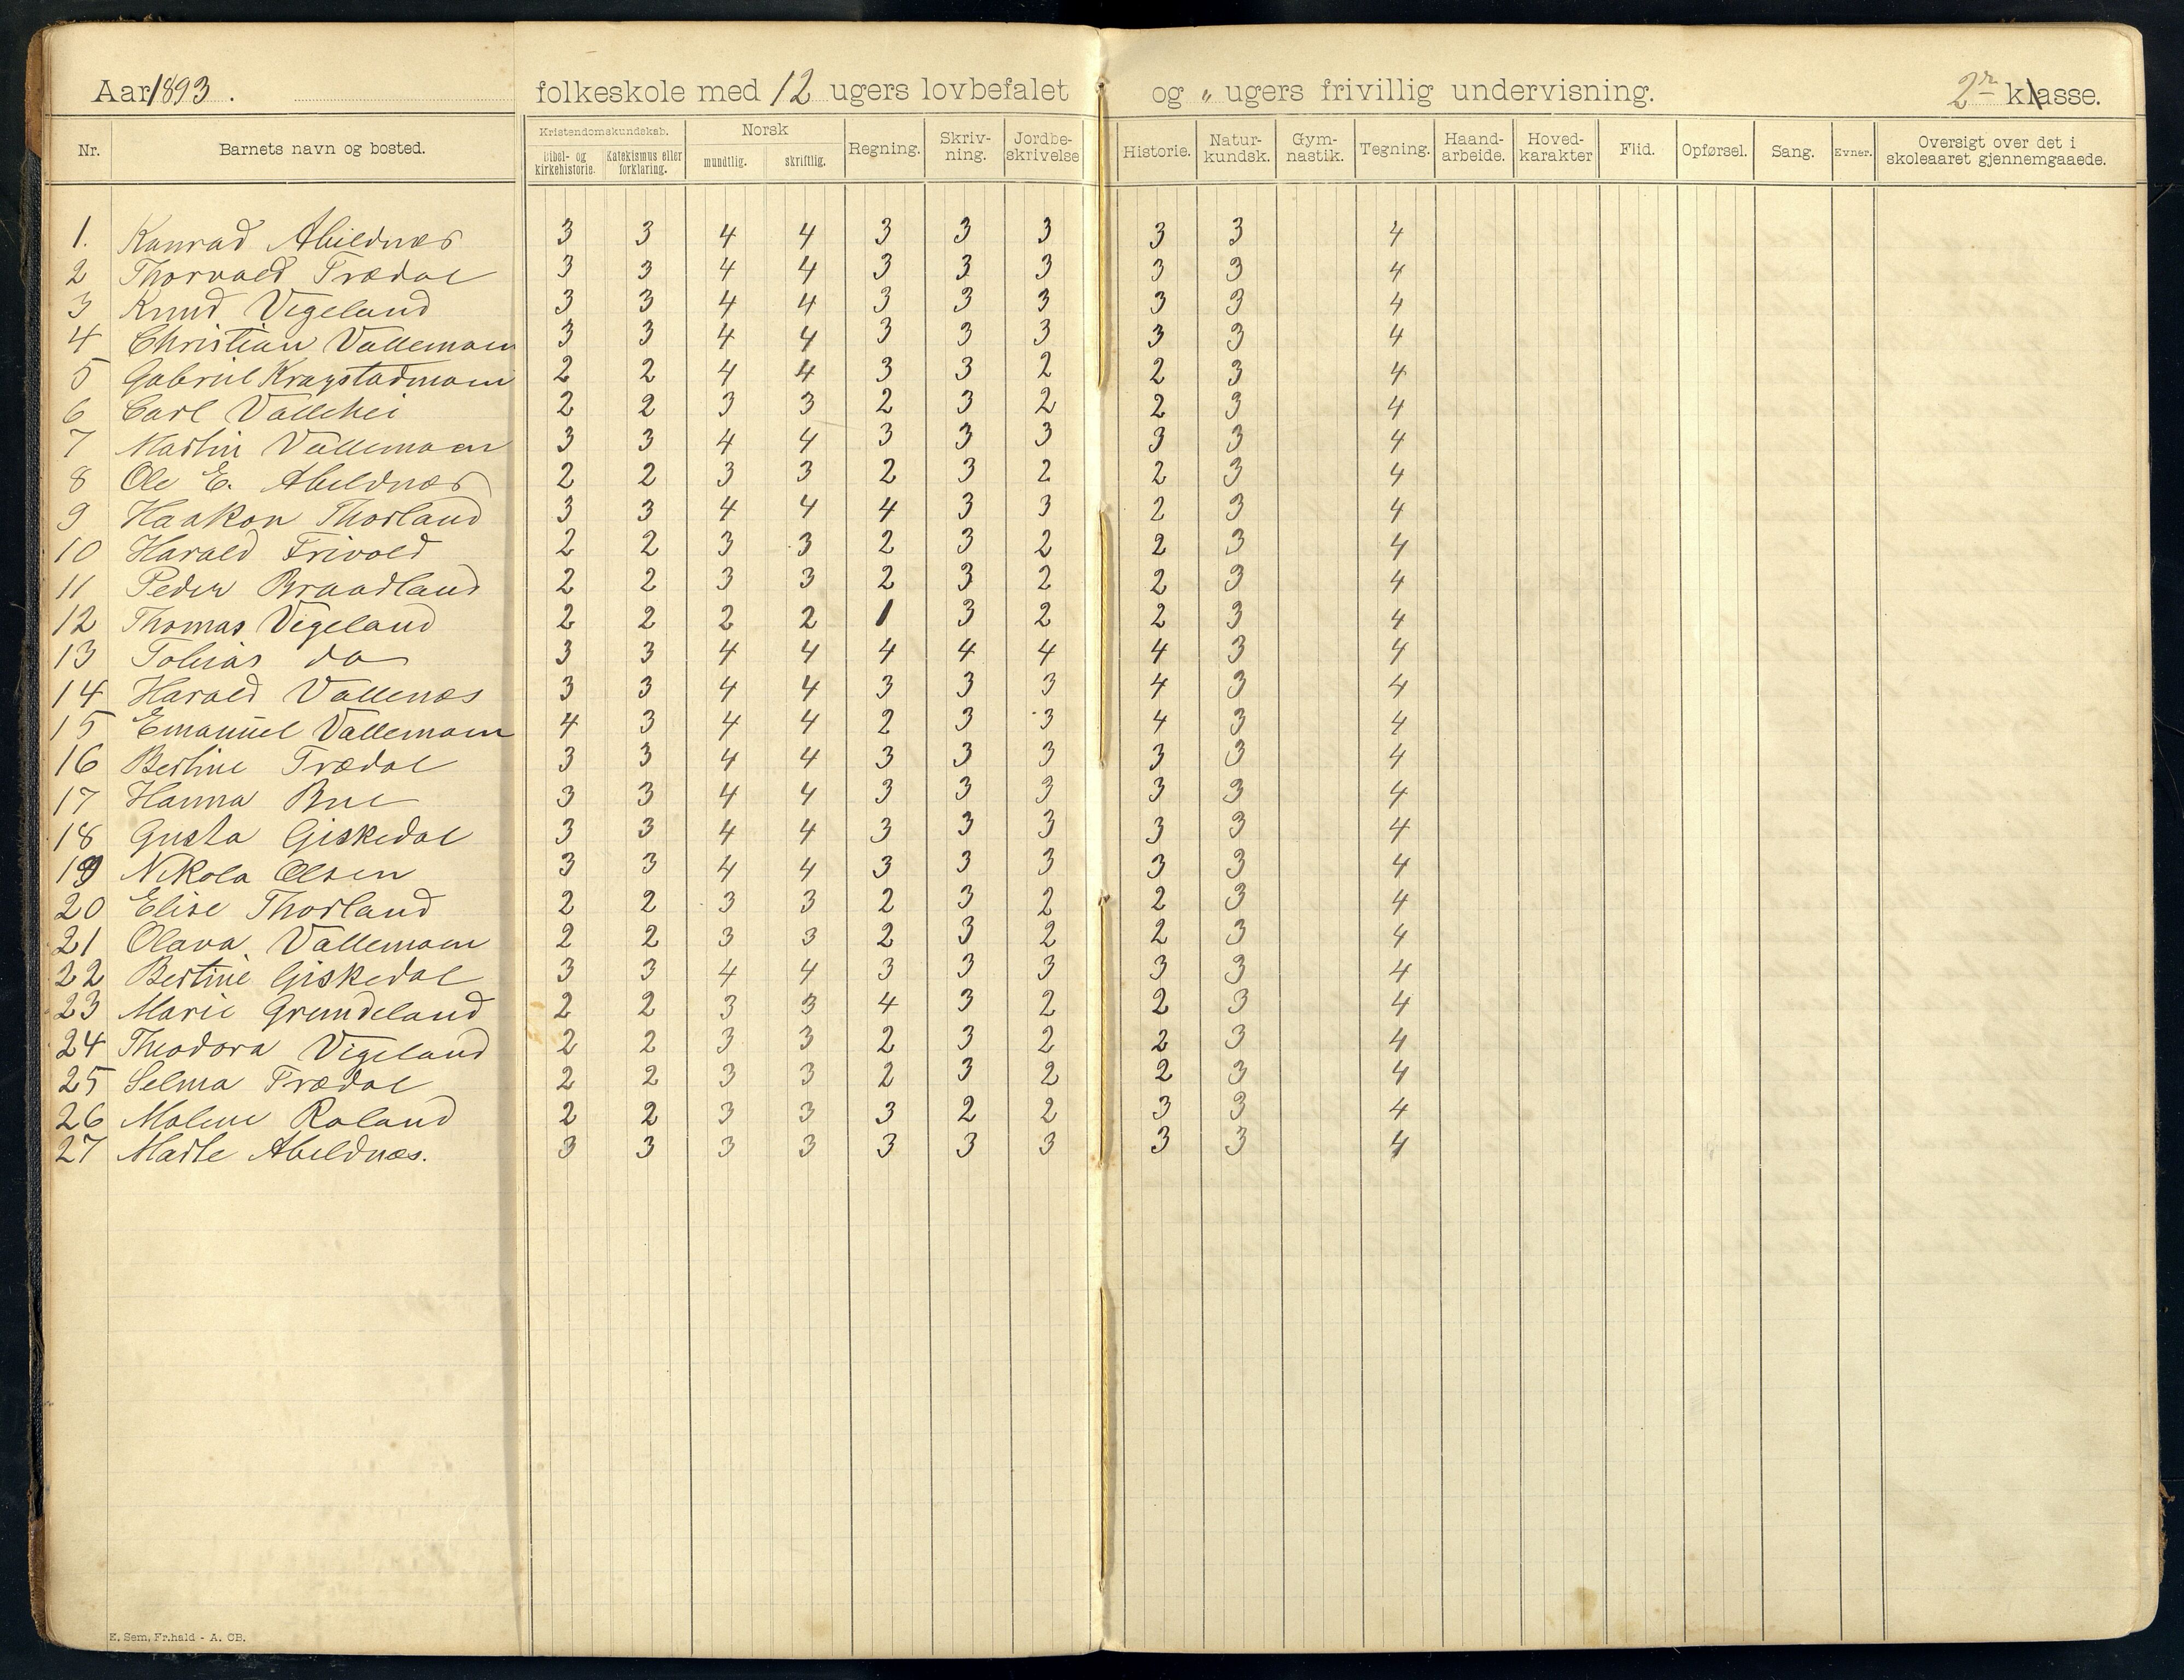 Aar 1893. folkeskole med 12 ugers lovbefalet og " ugers frivillig undervisning. 2r klasse.
Nr. Barnets navn og bosted. Kristendomskundskab. Bibel- og kirkehistorie. Katekismus eller forklaring. Norsk mundtlig. skriftlig. Regning. Skriv-ning. Jordbe-skrivelse Historie. Natur-kundsk. Gym-nastik. Tegning. Haand-arbeide. Hoved-karakter Flid. Opførsel. Sang. Evner. Oversigt over det i skoleaaret gjennemgaaede.
1. Konrad Abildnæs 3 3 4 4 3 3 3 3 3 4
2 Thorvald Trædal 3 3 4 4 3 3 3 3 3 4
3 Knud Vigeland 3 3 4 4 3 3 3 3 3 4
4 Christian Vallemoen 3 3 4 4 3 3 3 3 3 4
5 Gabriel Kragstadmoen 2 2 4 4 3 3 2 2 3 4
6 Carl Vallehei 2 2 3 3 2 3 2 2 3 4
7 Martin Vallemoen 3 3 4 4 3 3 3 3 3 4
8 Ole E. Abildnæs 2 2 3 3 2 3 2 2 3 4
9 Haakon Thorland 3 3 4 4 4 3 3 2 3 4
10 Harald Trivold 2 2 3 3 2 3 2 2 3 4
11 Peder Braadland 2 2 3 3 2 3 2 2 3 4
12 Thomas Vigeland 2 2 2 2 1 3 2 2 3 4
13 Tobias do 3 3 4 4 4 4 4 4 3 4
14 Harald Vallenæs 3 3 4 4 3 3 3 4 3 4
15 Emanuel Vallemoen 4 3 4 4 2 3 3 4 3 4
16 Bertine Trædal 3 3 4 4 3 3 3 3 3 4
17 Hanna Bue 3 3 4 4 3 3 3 3 3 4
18 Gusta Giskedal 3 3 4 4 3 3 3 3 3 4
19 Nikola Olsen 3 3 4 4 3 3 3 3 3 4
20 Elise Thorland 2 2 3 3 2 3 2 2 3 4
21 Olava Vallemoen 2 2 3 3 2 3 2 2 3 4
22 Bertine Giskedal 3 3 4 4 3 3 3 3 3 4
23 Marie Grundeland 2 2 3 3 4 3 2 2 3 4
24 Theodora Vigeland 2 2 3 3 2 3 2 2 3 4
25 Selma Trædal 2 2 3 3 2 3 2 2 3 4
26 Malene Roland 2 2 3 3 3 2 2 3 3 4
27 Marte Abildnæs. 3 3 3 3 3 3 3 3 3 4
E. Sem, Fr.hald - A. CB.